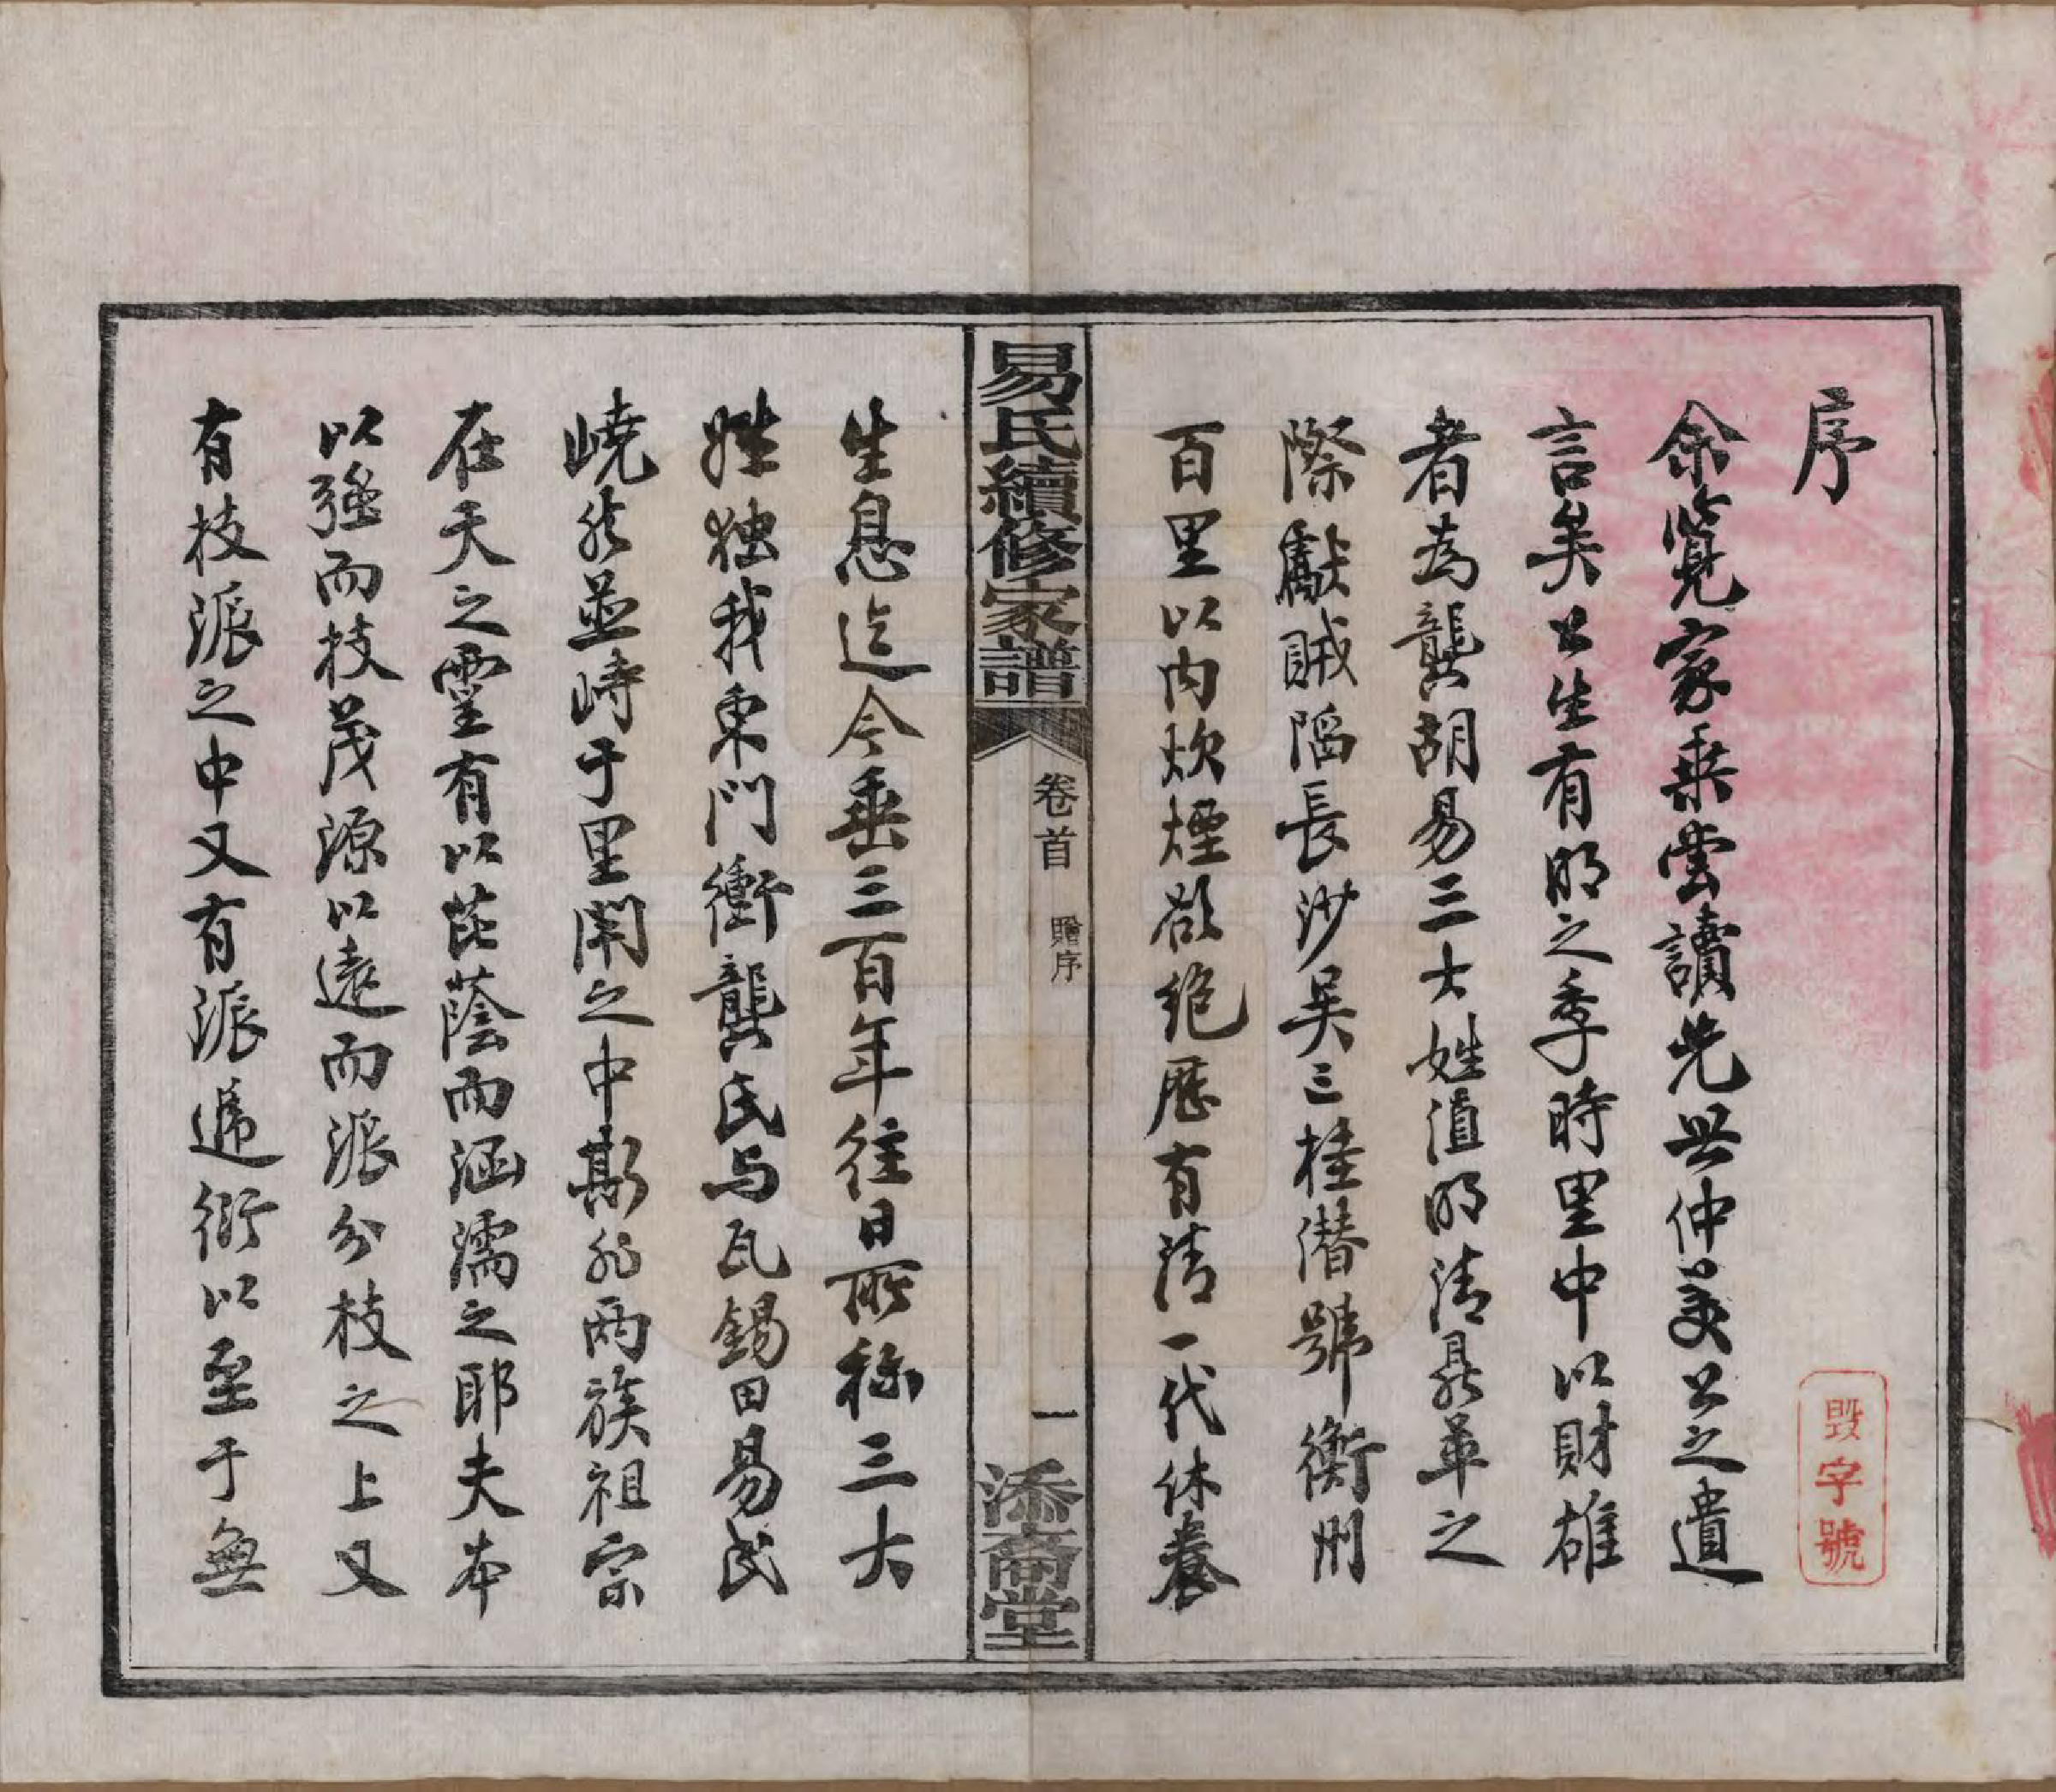 序
余覽家乘嘗讀先世仲美公之遺
言矣公生有明之季時里中以財雄
者為龔胡易三大姓值明清鼎革之
際獻賊陷長沙吴三桂僣號衡州
百里以内炊煙欲絶歷有清一代休養
易氏續修家譜
卷首
贈序
一
添商堂
生息迄今垂三百年往日所稱三大
姓独我東門衝龔氏与瓦錫田易氏
嶢然並峙于里閈之中斯非兩族祖宗
在天之靈有以芘蔭而涵濡之耶夫本
以强而枝茂源以遠而派分枝之上又
有枝派之中又有派遞衍以至于無
毀字號